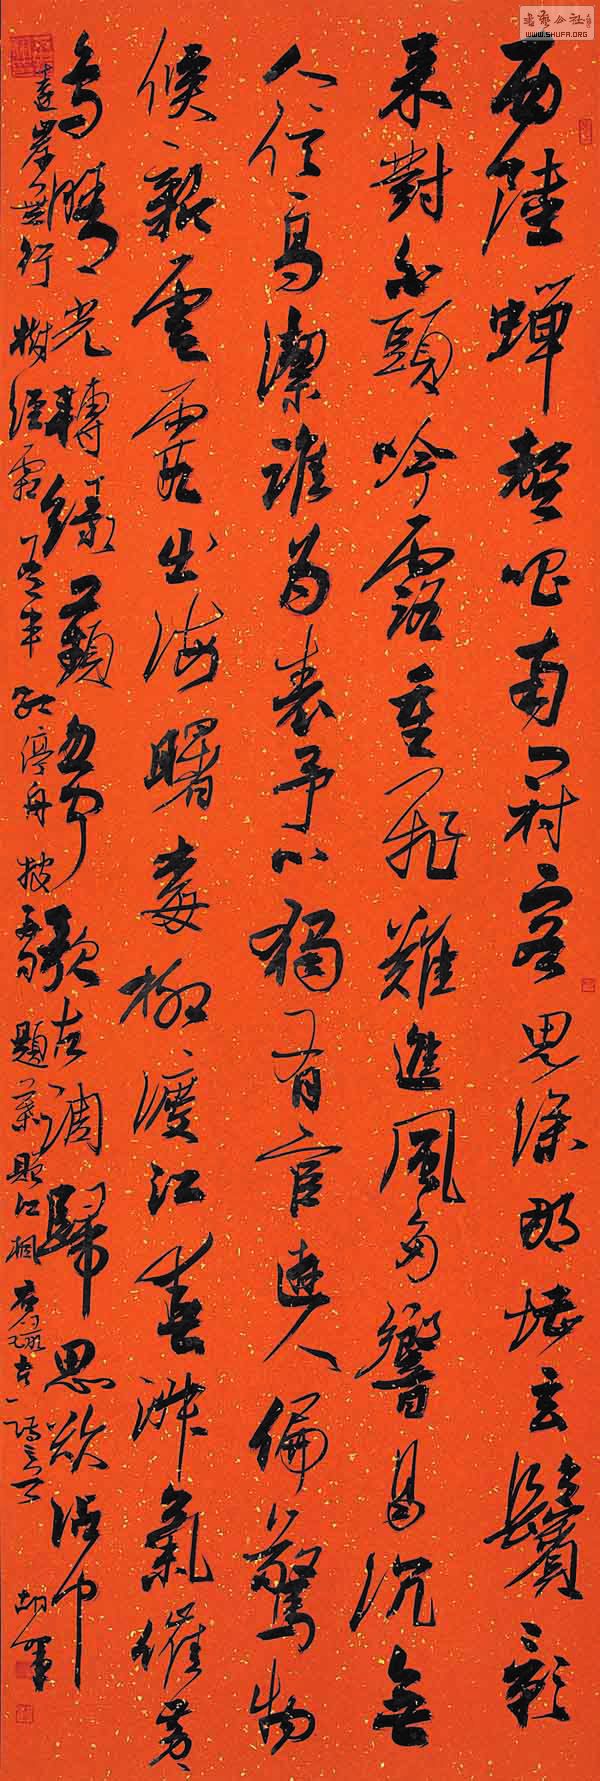 西陸蟬聲唱南冠客思深那堪玄鬢影
來對白頭吟露重飛難進風多響易沉無
人信高潔誰為表予心獨有宦遊人偏驚物
候新雲霞出海曙梅柳渡江春淑氣催黃
鳥晴光轉綠蘋忽聞歌古調歸思欲沾巾
遠岸無行樹經霜有半紅停舟披句題葉贈江楓
书艺公社
WWW.SHUFA.ORG